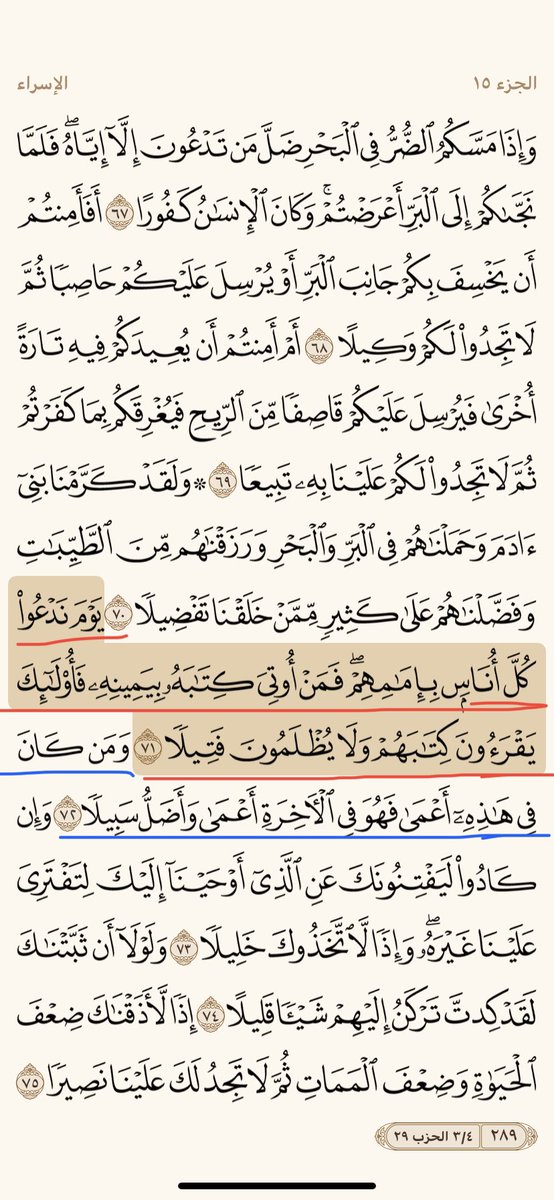 الجزء ١٥ الإسراء
وَإِذَا مَسَّكُمُ ٱلضُّرُّ فِي ٱلۡبَحۡرِ ضَلَّ مَن تَدۡعُونَ إِلَّآ إِيَّاهُۖ فَلَمَّا
نَجَّىٰكُمۡ إِلَى ٱلۡبَرِّ أَعۡرَضۡتُمۡۚ وَكَانَ ٱلۡإِنسَٰنُ كَفُورًا ٦٧ أَفَأَمِنتُمۡ
أَن يَخۡسِفَ بِكُمۡ جَانِبَ ٱلۡبَرِّ أَوۡ يُرۡسِلَ عَلَيۡكُمۡ حَاصِبٗا ثُمَّ
لَا تَجِدُواْ لَكُمۡ وَكِيلًا ٦٨ أَمۡ أَمِنتُمۡ أَن يُعِيدَكُمۡ فِيهِ تَارَةً
أُخۡرَىٰ فَيُرۡسِلَ عَلَيۡكُمۡ قَاصِفٗا مِّنَ ٱلرِّيحِ فَيُغۡرِقَكُم بِمَا كَفَرۡتُمۡ
ثُمَّ لَا تَجِدُواْ لَكُمۡ عَلَيۡنَا بِهِۦ تَبِيعٗا ٦٩ ۞ وَلَقَدۡ كَرَّمۡنَا بَنِيٓ
ءَادَمَ وَحَمَلۡنَٰهُمۡ فِي ٱلۡبَرِّ وَٱلۡبَحۡرِ وَرَزَقۡنَٰهُم مِّنَ ٱلطَّيِّبَٰتِ
وَفَضَّلۡنَٰهُمۡ عَلَىٰ كَثِيرٖ مِّمَّنۡ خَلَقۡنَا تَفۡضِيلٗا ٧٠ يَوۡمَ نَدۡعُواْ
كُلَّ أُنَاسِۭ بِإِمَٰمِهِمۡۖ فَمَنۡ أُوتِيَ كِتَٰبَهُۥ بِيَمِينِهِۦ فَأُوْلَٰٓئِكَ
يَقۡرَءُونَ كِتَٰبَهُمۡ وَلَا يُظۡلَمُونَ فَتِيلٗا ٧١ وَمَن كَانَ
فِي هَٰذِهِۦٓ أَعۡمَىٰ فَهُوَ فِي ٱلۡأٓخِرَةِ أَعۡمَىٰ وَأَضَلُّ سَبِيلٗا ٧٢ وَإِن
كَادُواْ لَيَفۡتِنُونَكَ عَنِ ٱلَّذِيٓ أَوۡحَيۡنَآ إِلَيۡكَ لِتَفۡتَرِيَ
عَلَيۡنَا غَيۡرَهُۥۖ وَإِذٗا لَّٱتَّخَذُوكَ خَلِيلٗا ٧٣ وَلَوۡلَآ أَن ثَبَّتۡنَٰكَ
لَقَدۡ كِدتَّ تَرۡكَنُ إِلَيۡهِمۡ شَيۡـٔٗا قَلِيلًا ٧٤ إِذٗا لَّأَذَقۡنَٰكَ ضِعۡفَ
ٱلۡحَيَوٰةِ وَضِعۡفَ ٱلۡمَمَاتِ ثُمَّ لَا تَجِدُ لَكَ عَلَيۡنَا نَصِيرٗا ٧٥
٢٨٩ ٣/٤ الحزب ٢٩